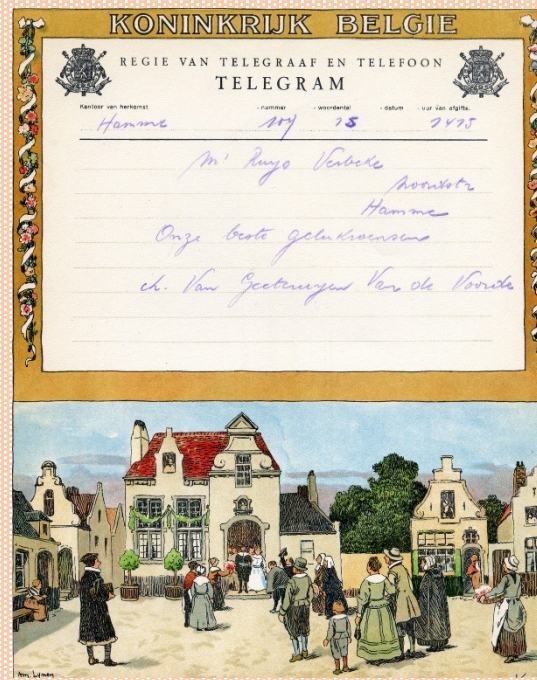 KONINKRIJK BELGIE
REGIE VAN TELEGRAAF EN TELEFOON
TELEGRAM
Kantoor van herkomst - nummer - woordental - datum - uur van afgifte.
Hamme 107 15 1415
Mr Verbeke
Noordstr
Hamme
Onze beste gelukwensen
ch. Van Van de Voorde
Am. Lynen